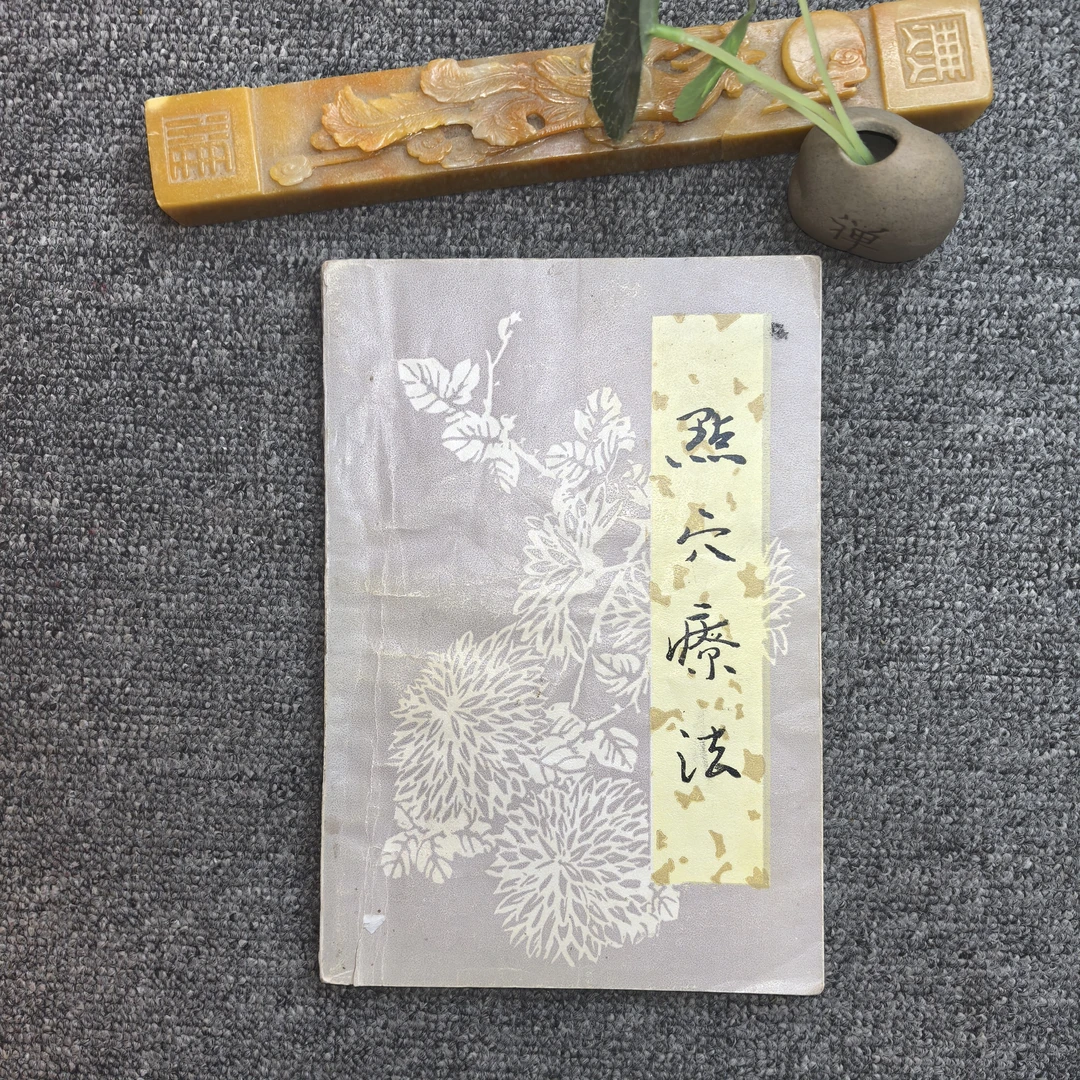 點穴療法
禪